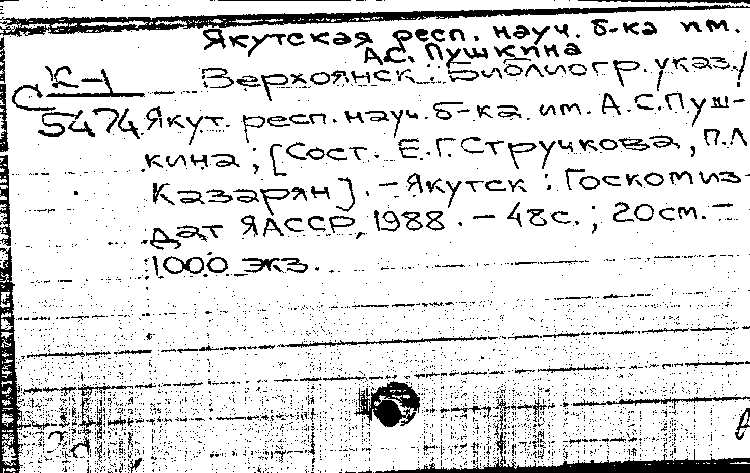 Якутская респ. науч. б-ка им.
А.С. Пушкина
К-1
С
5474
Верхоянск: Библиогр. указ./
Якут. респ. науч. б-ка им. А.С.Пуш-
кина; [Сост. Е.Г.Стручкова, П.Л
Казарян]. - Якутск: Госкомиз-
дат ЯАССР, 1988. - 48с.; 20см. -
1000 экз.